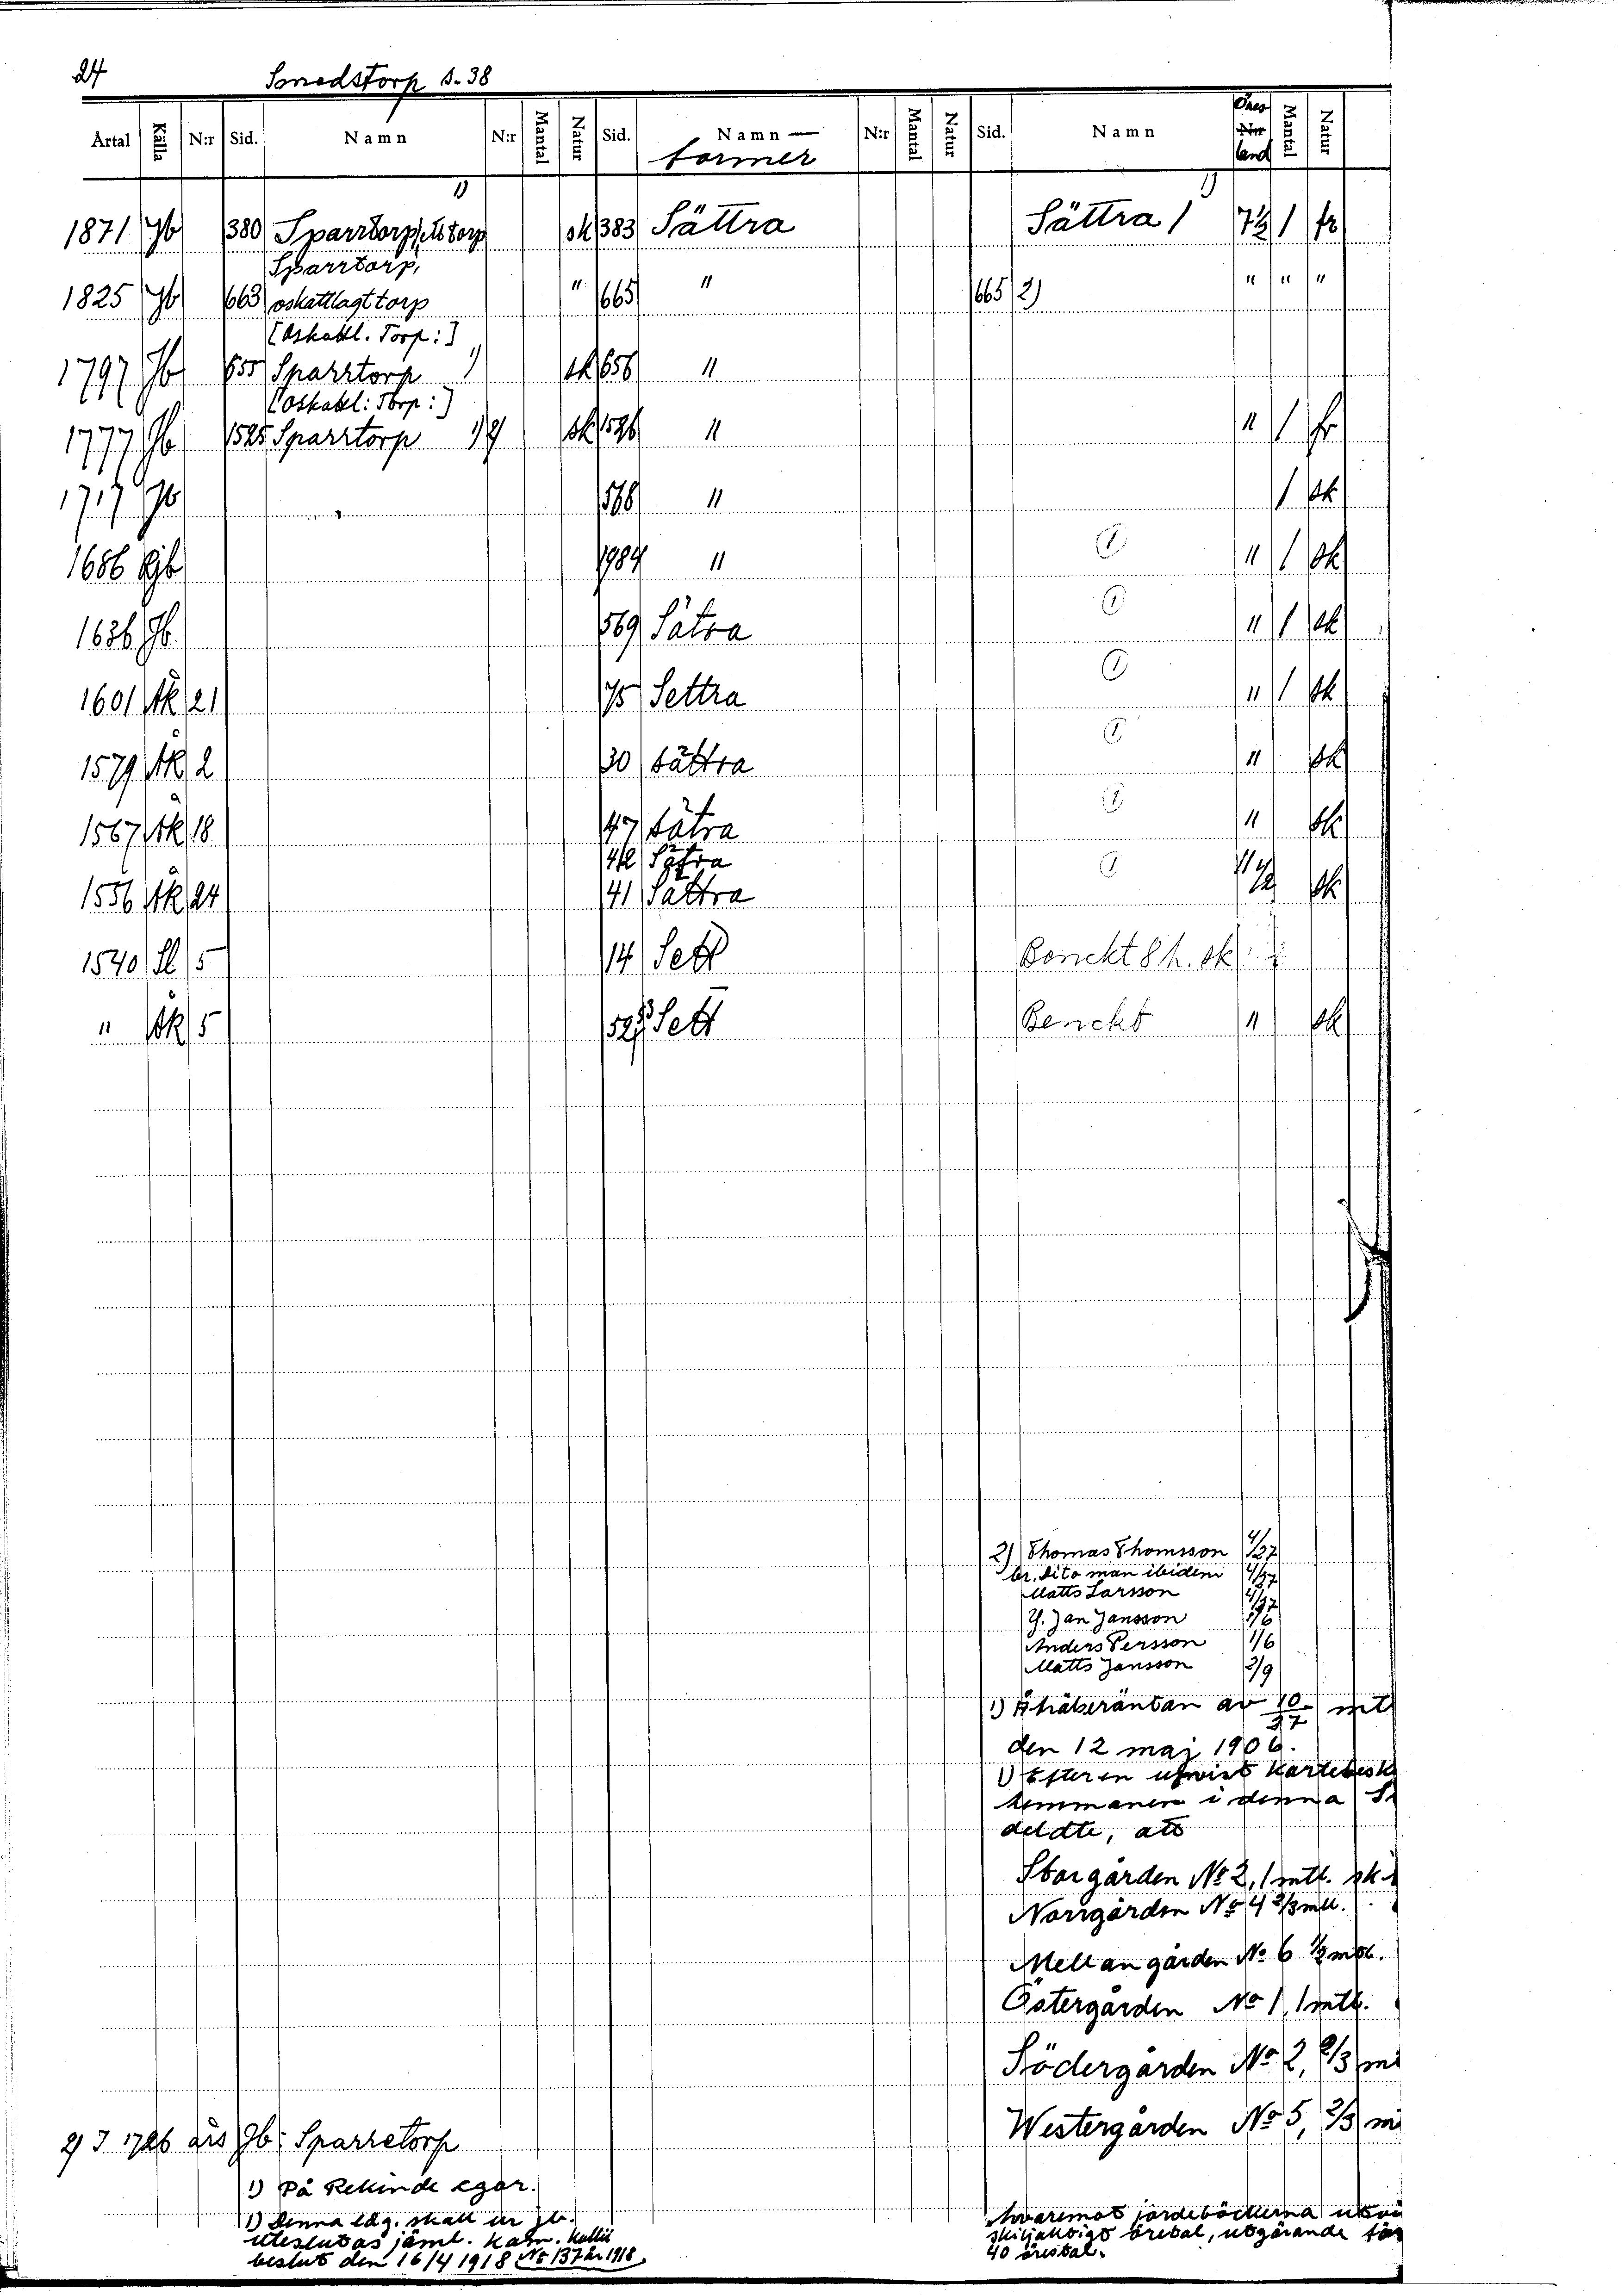 24 Smedstorp s. 38
Årtal Källa N:r Sid. Namn N:r Mantal Natur Sid. Namn — former N:r Mantal Natur Sid. Namn Öres land Mantal Natur
1871 Jb 380 Sparrtorp, 1) sk 383 Sättra Sättra 1 1) 7½ 1 fr
Sparrtorp,
1825 Jb 663 oskattlagt torp " 665 " 665 2) " " "
[Oskattl. Torp:]
1797 Jb 655 Sparrtorp 1) sk 656 "
[Oskattl: Torp:]
1777 Jb 1525 Sparrtorp 1) 2) sk 1526 " " 1 fr
1717 Jb 568 " 1 sk
1686 Jb 1984 " (1) " 1 sk
1636 Jb. 569 Sätra (1) " 1 sk
1601 Åk 21 75 Settra (1) " 1 sk
1579 Åk 2 30 Sättra (1) " sk
1567 Åk 18 47 Sätra (1) " sk
42 Sätra
1556 Åk 24 41 Sättra (1) sk
1540 Sl 5 14 Sett Benckt 8 h. sk
" Åk 5 Sett Benckt " sk
2) Thomas Thomsson 4/27
br. dito man ibidem 4/27
Matts Larsson 4/27
Y. Jan Jansson 1/6
Anders Persson 1/6
Matts Jansson 2/9
1) Åhäberäntan av 10/27 mtl
den 12 maj 1906.
1) Efter en ufwist kartebesk
hemmanen i denna
deldte, att
Storgården No 2, 1 mtl. sk
Norrgården No 4 2/3 mtl.
Mellangården No 6 ½ mtl.
Östergården No 1, 1 mtl.
Södergården No 2, 2/3 m
Westergården No 5, 2/3 m
2) I 1726 års Jb: Sparretorp
1) På Rekinde egor.
1) Denna läg. skall ur jb.
uteslutas jäml. Kam. Kollii
beslut den 16/4 1918 No 137 år 1918
hvaremot jordeböckerna utvi
skiljaktigt örebal, utgörande för
40 örestal.